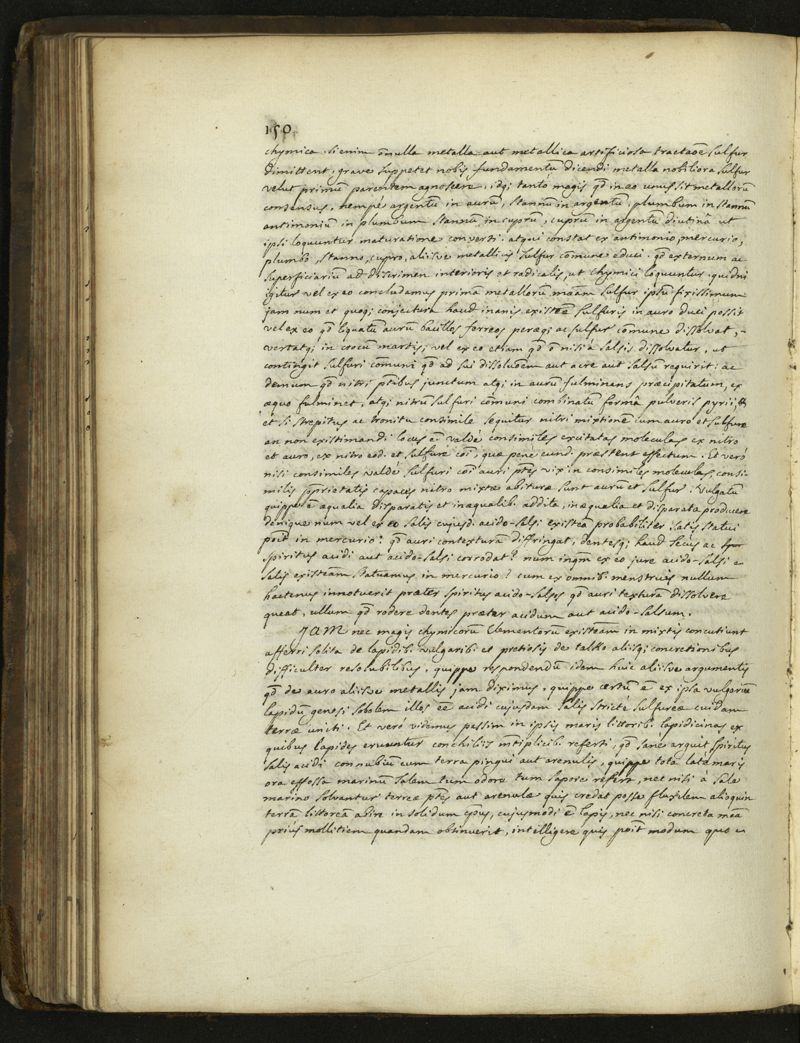 150
chymica. si enim õnulla metalla aut metallica artificiosa tractaõe sulfur
dimittent, grave suppetet nobis fundamentũ dicendi metalla nobiliora sulfur
velut primũ parentem agnoscere, idq; tanto magis qd̃ in eo unus sit metallorũ
consensus, nempè argentũ in aurũ, stannũ in argentũ, plumbum in stannũ
antimoniũ in plumbum stannũ in cuprũ, cuprũ in argentũ diutinâ ut
ipsi loquuntur maturatione converti. atqui constat ex antimonio, mercurio,
plumbo, stanno, cupro, aliisve metallicis sulfur cõmune educi. qd̃ externum ac
superficiariũ ad discrimen interioris et radicalis, ut chymici loquuntur. quidni
igitur vel ex eo concludamus primã metallorũ mãam sulfur ipsũ fixissimum
jam num et quoq; conjectura haud inanis existẽæ sulfuris in auro duci possit
vel ex eo qd̃ liquatũ aurũ bacillos ferreos peragi ac sulfur cõmune dissolvat,
vertatq; in crocum martis, vel ex eo etiam qd̃ õ nisi à salsis dissolvatur, ut
contingit sulfuri cõmuni qd̃ ad sui dissoluõem aut acre aut salsũ requirit: ac
demum qd̃ nitri ptibus junctum atq; in aurũ fulminans præcipitatum, ex
æquo fulminet, atq; nitrũ sulfuri cõmuni combinatum formâ pulveris pyrii,
et si strepitus ac tronitu consimile sequitur nitri mixtione cum auro et sulfure
an non existimandi locus ẽ valdè consimiles excitatas moleculas ex nitro
et auro, ex nitro eod. et sulfure coĩ, quæ penè eund. præstent effectum. Et verò
nisi consimiles valdè sulfuri coĩ auri ptes vix in consimiles moleculas, consi-
milis proprietatis capaces nitro mixtæ abituræ sunt aurũ et sulfur. Vulgatũ
quippe ẽ æqualia disparatis et inæqualib. addita, inæqualia et disparata producere
denique num vel ex eo salis cujusd. acido-salsi existẽa probabiliter satis statui
poit̃ in mercurio? qd̃ auri contexturã diffringat, dentesq; haud secus ac
spiritus acidi aut acido-salsi corrodat? num inqm̃ ex eo jure acido-salsi
salis existẽam statuamus in mercurio? cum ex omnib. menstruis nullum
hactenus innotuerit præter spiritus acido-salsos qd̃ auri texturã dissolvere
queat, ullum qd̃ rodere dentes præter acidum aut acido-salsum.
JAM nec magis chymicorũ elementorũ existẽam in mixtis concutiunt
afferri solita de lapidib. vulgarib. et pretiosis de talko aliisq; concretionibus
difficulter resolubilibus, quippe respondendũ idem huic aliisve argumentis
qd̃ de auro aliisve metallis jam diximus. quippe certũ ẽ ex ipsa vulgariũ
lapidũ genesi sobolem illos ẽe acidi cujusdam salis strictè sulfureæ cuidam
terræ uniti. Et verò videmus passim in ipsis maris littorib. lapidicinas ex
quibus lapides eruuntur conchiliis m̃tiplicib. referti, qd̃ sanè arguit spiritus
salis acidi connubiũ cum terra pingui aut arenulis, quippe tota lata maris
ora effossa marinũ salem tum odore tum sapore refert, nec nisi à sale
marino solvantur terreæ ptes aut arenulæ quis credat posse fluxilem alioquin
terrã littoreã abire in solidum cpus, cujusmodi ẽ lapis, nec nisi concreta mãa
priùs mollitiem quandam obtinuerit, intelligere quis poit̃ modum quo